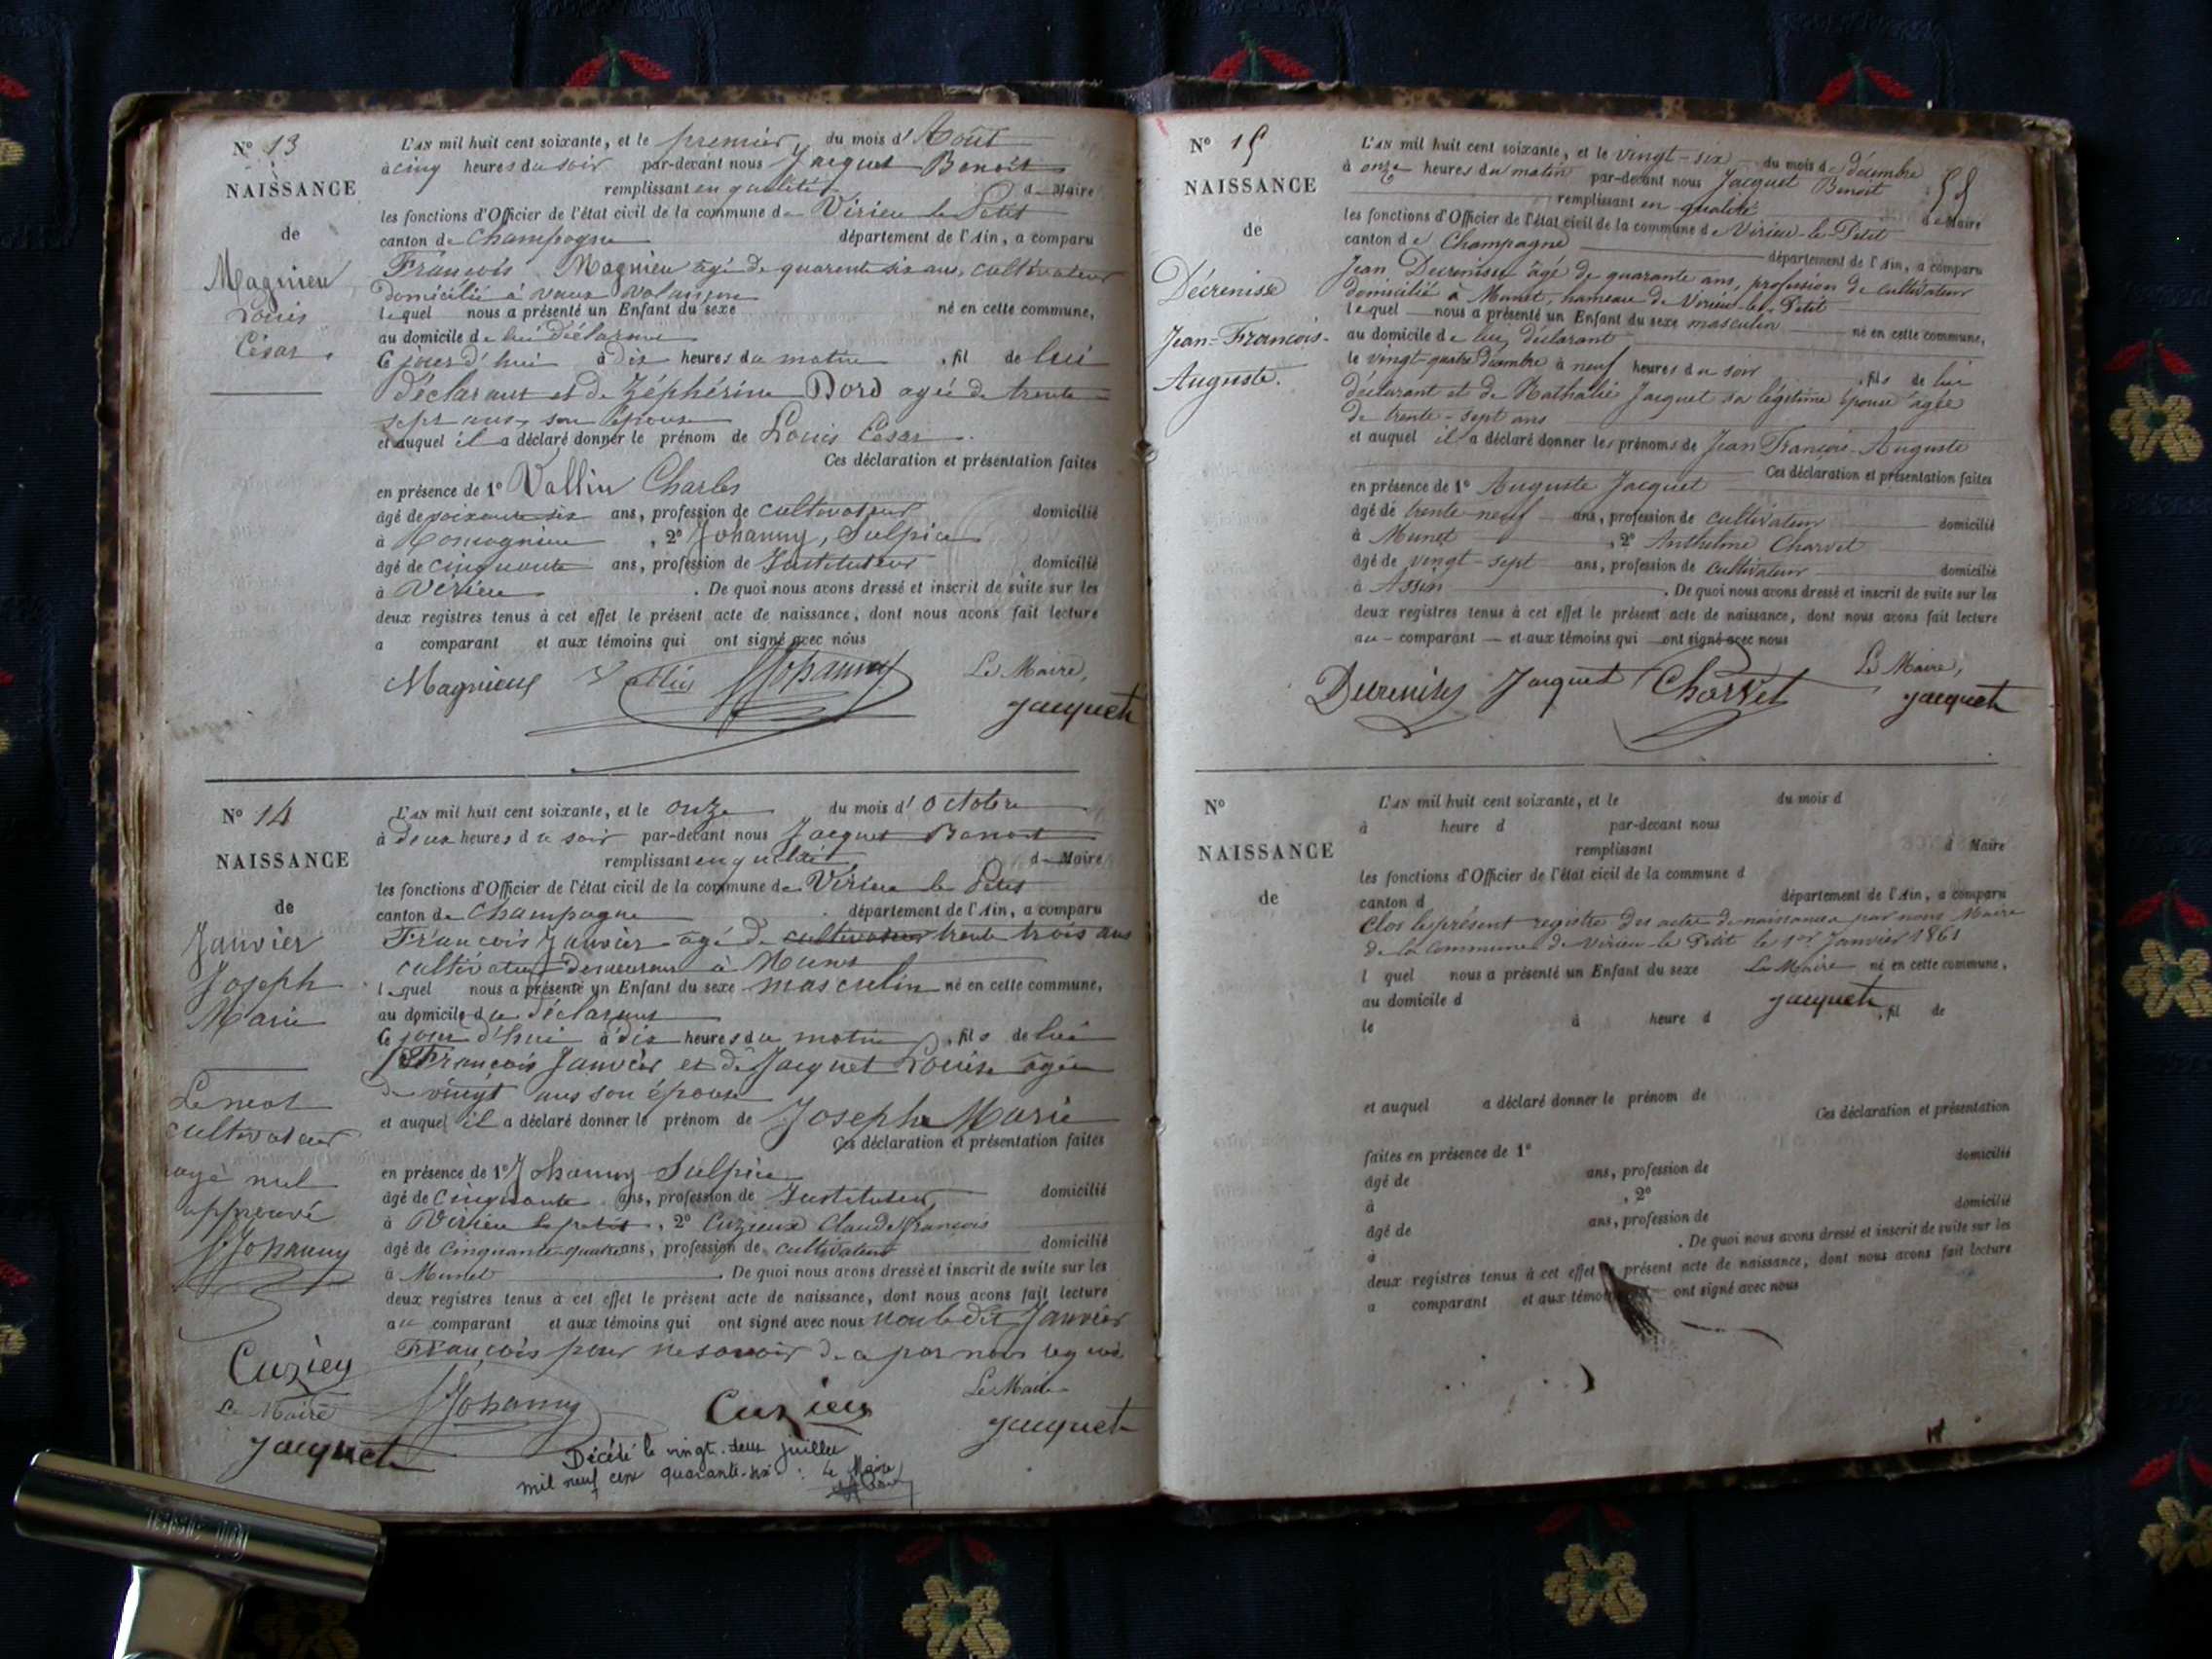 N° 13
NAISSANCE
de
Magnieu
Louis
César.
L'AN mil huit cent soixante, et le premier du mois d'Août
à cinq heures du soir par-devant nous Jacquet Benoit
remplissant en qualité de Maire
les fonctions d'Officier de l'état civil de la commune de Virieu le Petit
canton de Champagne département de l'Ain, a comparu
François Magnieu âgé de quarente six ans, cultivateur
domicilié à
lequel nous a présenté un Enfant du sexe né en cette commune,
au domicile de lui déclarant
ce jour d'hui à dix heures du matin, fil de lui
déclarant et de Zéphérine Dord agée de trente
sept ans, son épouse
et auquel il a déclaré donner le prénom de Louis César.
Ces déclaration et présentation faites
en présence de 1° Vallin Charles
âgé de soixante six ans, profession de cultivateur domicilié
à , 2° Johanny, Sulpice
âgé de cinquante ans, profession de Instituteur domicilié
à Virieu. De quoi nous avons dressé et inscrit de suite sur les
deux registres tenus à cet effet le présent acte de naissance, dont nous avons fait lecture
a comparant et aux témoins qui ont signé avec nous
Le Maire,
Magnieu Vallin Johanny Jacquet
N° 14
NAISSANCE
de
Janvier
Joseph
Marie
Le mot
cultivateur
rayé nul
approuvé
Johanny
Cuzieu
Le Maire
Jacquet
L'AN mil huit cent soixante, et le onze du mois d'Octobre
à deux heures du soir par-devant nous Jacquet Benoit
remplissant en qualité de Maire
les fonctions d'Officier de l'état civil de la commune de Virieu le Petit
canton de Champagne département de l'Ain, a comparu
François Janvier âgé de cultivateur trente trois ans
cultivateur demeurant à Munet
lequel nous a présenté un Enfant du sexe masculin né en cette commune,
au domicile du déclarant
ce jour d'hui à dix heures du matin, fils de lui
François Janvier et de Jacquet Louise âgée
de vingt ans son épouse
et auquel il a déclaré donner le prénom de Joseph Marie
Ces déclaration et présentation faites
en présence de 1° Johanny Sulpice
âgé de cinquante ans, profession de Instituteur domicilié
à Virieu le petit, 2° Cuzieux Claude François
âgé de cinquante-quatre ans, profession de cultivateur domicilié
à Munet. De quoi nous avons dressé et inscrit de suite sur les
deux registres tenus à cet effet le présent acte de naissance, dont nous avons fait lecture
au comparant et aux témoins qui ont signé avec nous non ledit Janvier
François pour ne savoir de ce par nous requis
Le Maire
Johanny Cuzieu Jacquet
Décédé le vingt-deux juillet
mil neuf cent quarante-six : Le Maire
N° 15
NAISSANCE
de
Décrenisse
Jean-François-
Auguste.
55
L'AN mil huit cent soixante, et le vingt-six du mois de décembre
à onze heures du matin par-devant nous Jacquet Benoit
remplissant en qualité de Maire
les fonctions d'Officier de l'état civil de la commune de Virieu-le-Petit
canton de Champagne département de l'Ain, a comparu
Jean Décrenisse âgé de quarante ans, profession de cultivateur
domicilié à Munet, hameau de Virieu-le-Petit
lequel nous a présenté un Enfant du sexe masculin né en cette commune,
au domicile de lui, déclarant
le vingt-quatre décembre à neuf heures du soir, fils de lui
déclarant et de Nathalie Jacquet sa légitime épouse âgée
de trente-sept ans
et auquel il a déclaré donner les prénoms de Jean François-Auguste
Ces déclaration et présentation faites
en présence de 1° Auguste Jacquet
âgé de trente neuf ans, profession de cultivateur domicilié
à Munet, 2° Anthelme Charvet
âgé de vingt-sept ans, profession de cultivateur domicilié
à Assin. De quoi nous avons dressé et inscrit de suite sur les
deux registres tenus à cet effet le présent acte de naissance, dont nous avons fait lecture
au comparant et aux témoins qui ont signé avec nous
Le Maire,
Decrenisse Jacquet Charvet Jacquet
N°
NAISSANCE
de
L'AN mil huit cent soixante, et le du mois d
à heure d par-devant nous
remplissant d Maire
les fonctions d'Officier de l'état civil de la commune d
canton d département de l'Ain, a comparu
Clos le présent registre des actes de naissances par nous Maire
de la commune de Virieu-le-Petit le 1er Janvier 1861
l quel nous a présenté un Enfant du sexe Le Maire né en cette commune,
au domicile d Jacquet
le à heure d , fil de
et auquel a déclaré donner le prénom de
Ces déclaration et présentation
faites en présence de 1°
âgé de ans, profession de domicilié
à , 2°
âgé de ans, profession de domicilié
à . De quoi nous avons dressé et inscrit de suite sur les
deux registres tenus à cet effet le présent acte de naissance, dont nous avons fait lecture
a comparant et aux témoins ont signé avec nous